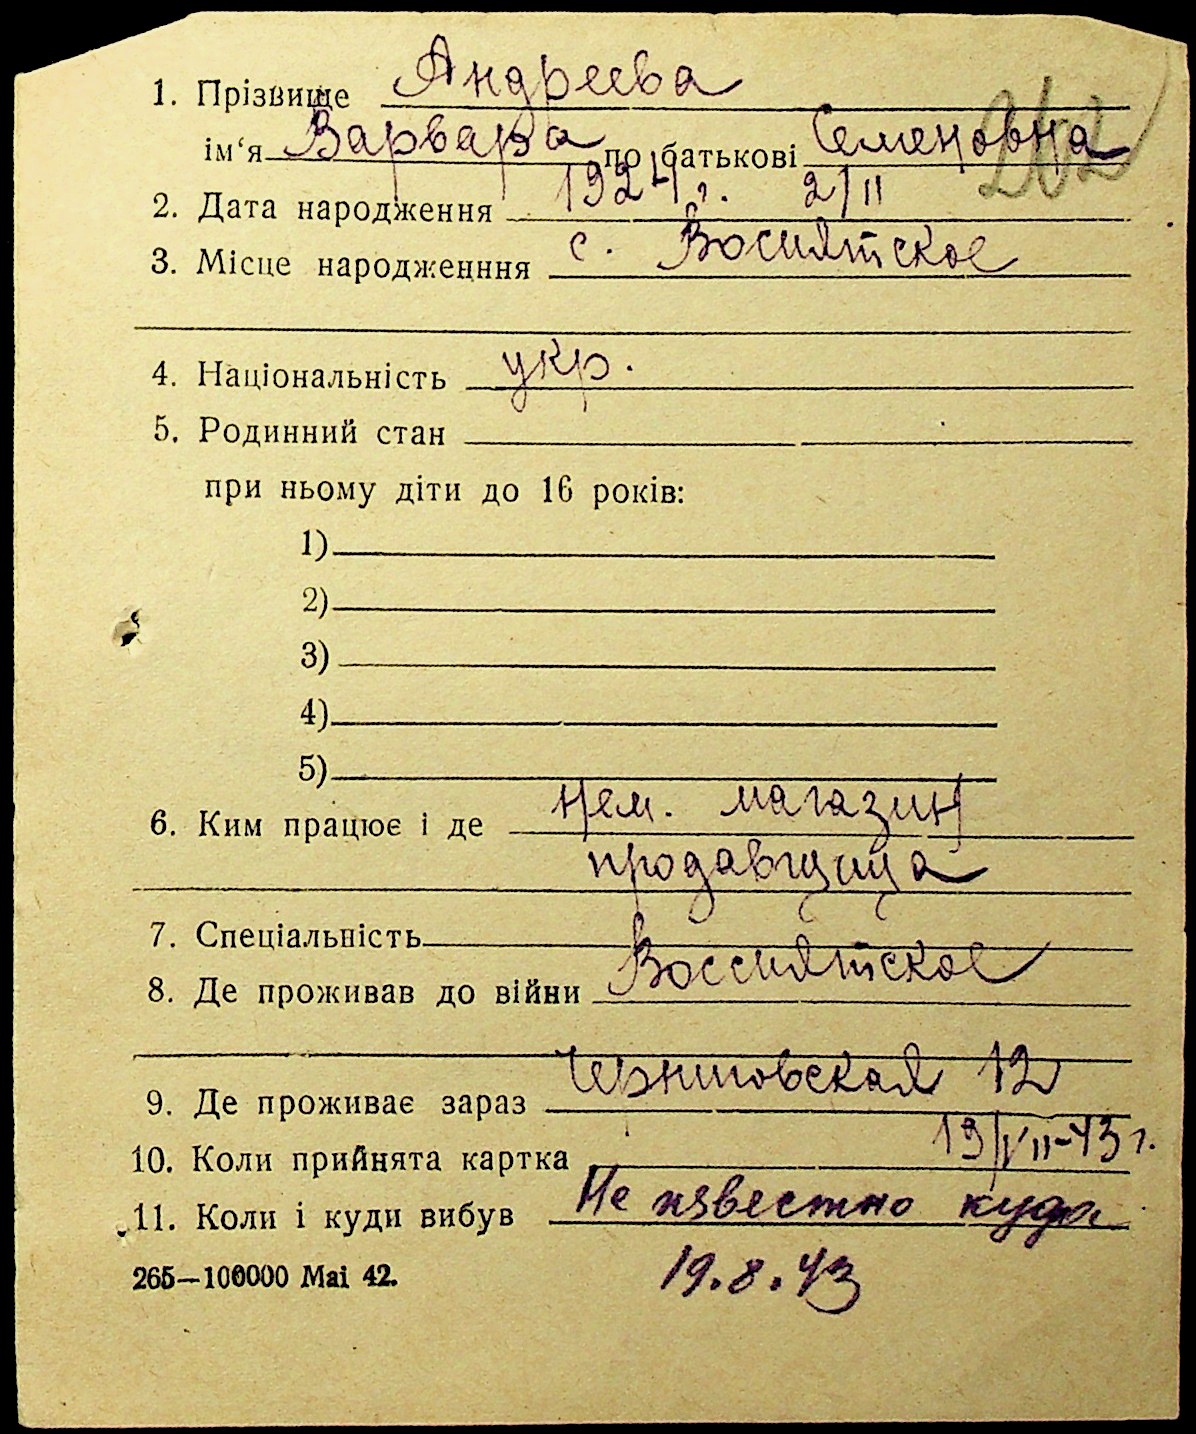 1. Прізвище Андреева
ім‘я Варвара по батькові Семеновна
262
2. Дата народження 1924 г. 2/II
3. Місце народженння с. Восиятское
4. Національність укр.
5. Родинний стан
при ньому діти до 16 років:
1)
2)
3)
4)
5)
6. Ким працює і де Нем. магазин
продавщица
7. Спеціальність
8. Де проживав до війни Воссиятское
9. Де проживає зараз Черниговская 12
10. Коли прийнята картка 19/VII-43 г.
11. Коли і куди вибув Не известно куда
265—100000 Mai 42. 19.8.43